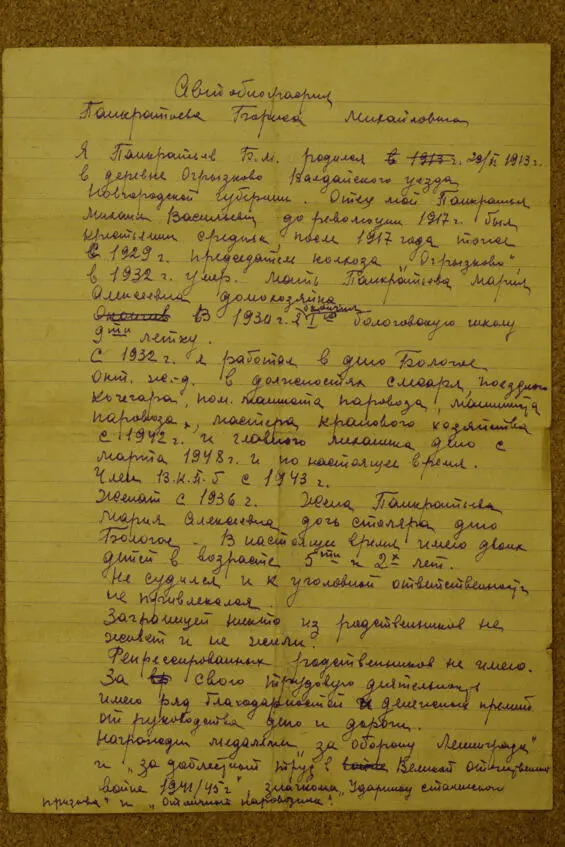 Автобиография
Панкратьева Бориса Михайловича
Я Панкратьев Б.М. родился в 1913 г. 29/II 1913 г.
в деревне Огрызково Валдайского уезда
Новгородской губернии. Отец мой Панкратьев
Михаил Васильевич до революции 1917 г. был
крестьянин средняк после 1917 года тоже
в 1929 г. председатель колхоза "Огрызково",
в 1932 г. умер. Мать Панкратьева Мария
Алексеевна домохозяйка
Окончив В 1930 г. окончил Iю Бологовскую школу
9ти летку.
С 1932 г. я работал в депо Бологое
Окт. ж.-д. в должностях слесаря, поездного
кочегара, пом. машиниста паровоза, машиниста
паровоза, мастера кранового хозяйства
с 1942 г. и главного механика депо с
марта 1948 г. и по настоящее время.
Член В.К.П.б с 1943 г.
Женат с 1936 г. Жена Панкратьева
Мария Алексеевна дочь столяра депо
Бологое. В настоящее время имею двоих
детей в возрасте 5ти и 2х лет.
Не судился и к уголовной ответственности
не привлекался.
Заграницей никто из родственников не
живет и не жили.
Репрессированных родственников не имею.
За свою трудовую деятельность
имею ряд благодарностей и денежных премий
от руководства депо и дороги.
Награжден медалями "за оборону Ленинграда"
и "за доблестный труд в войне Великой отечественной
войне 1941/45 г", значком "Ударнику сталинского
призыва" и "Отличный паровозник".